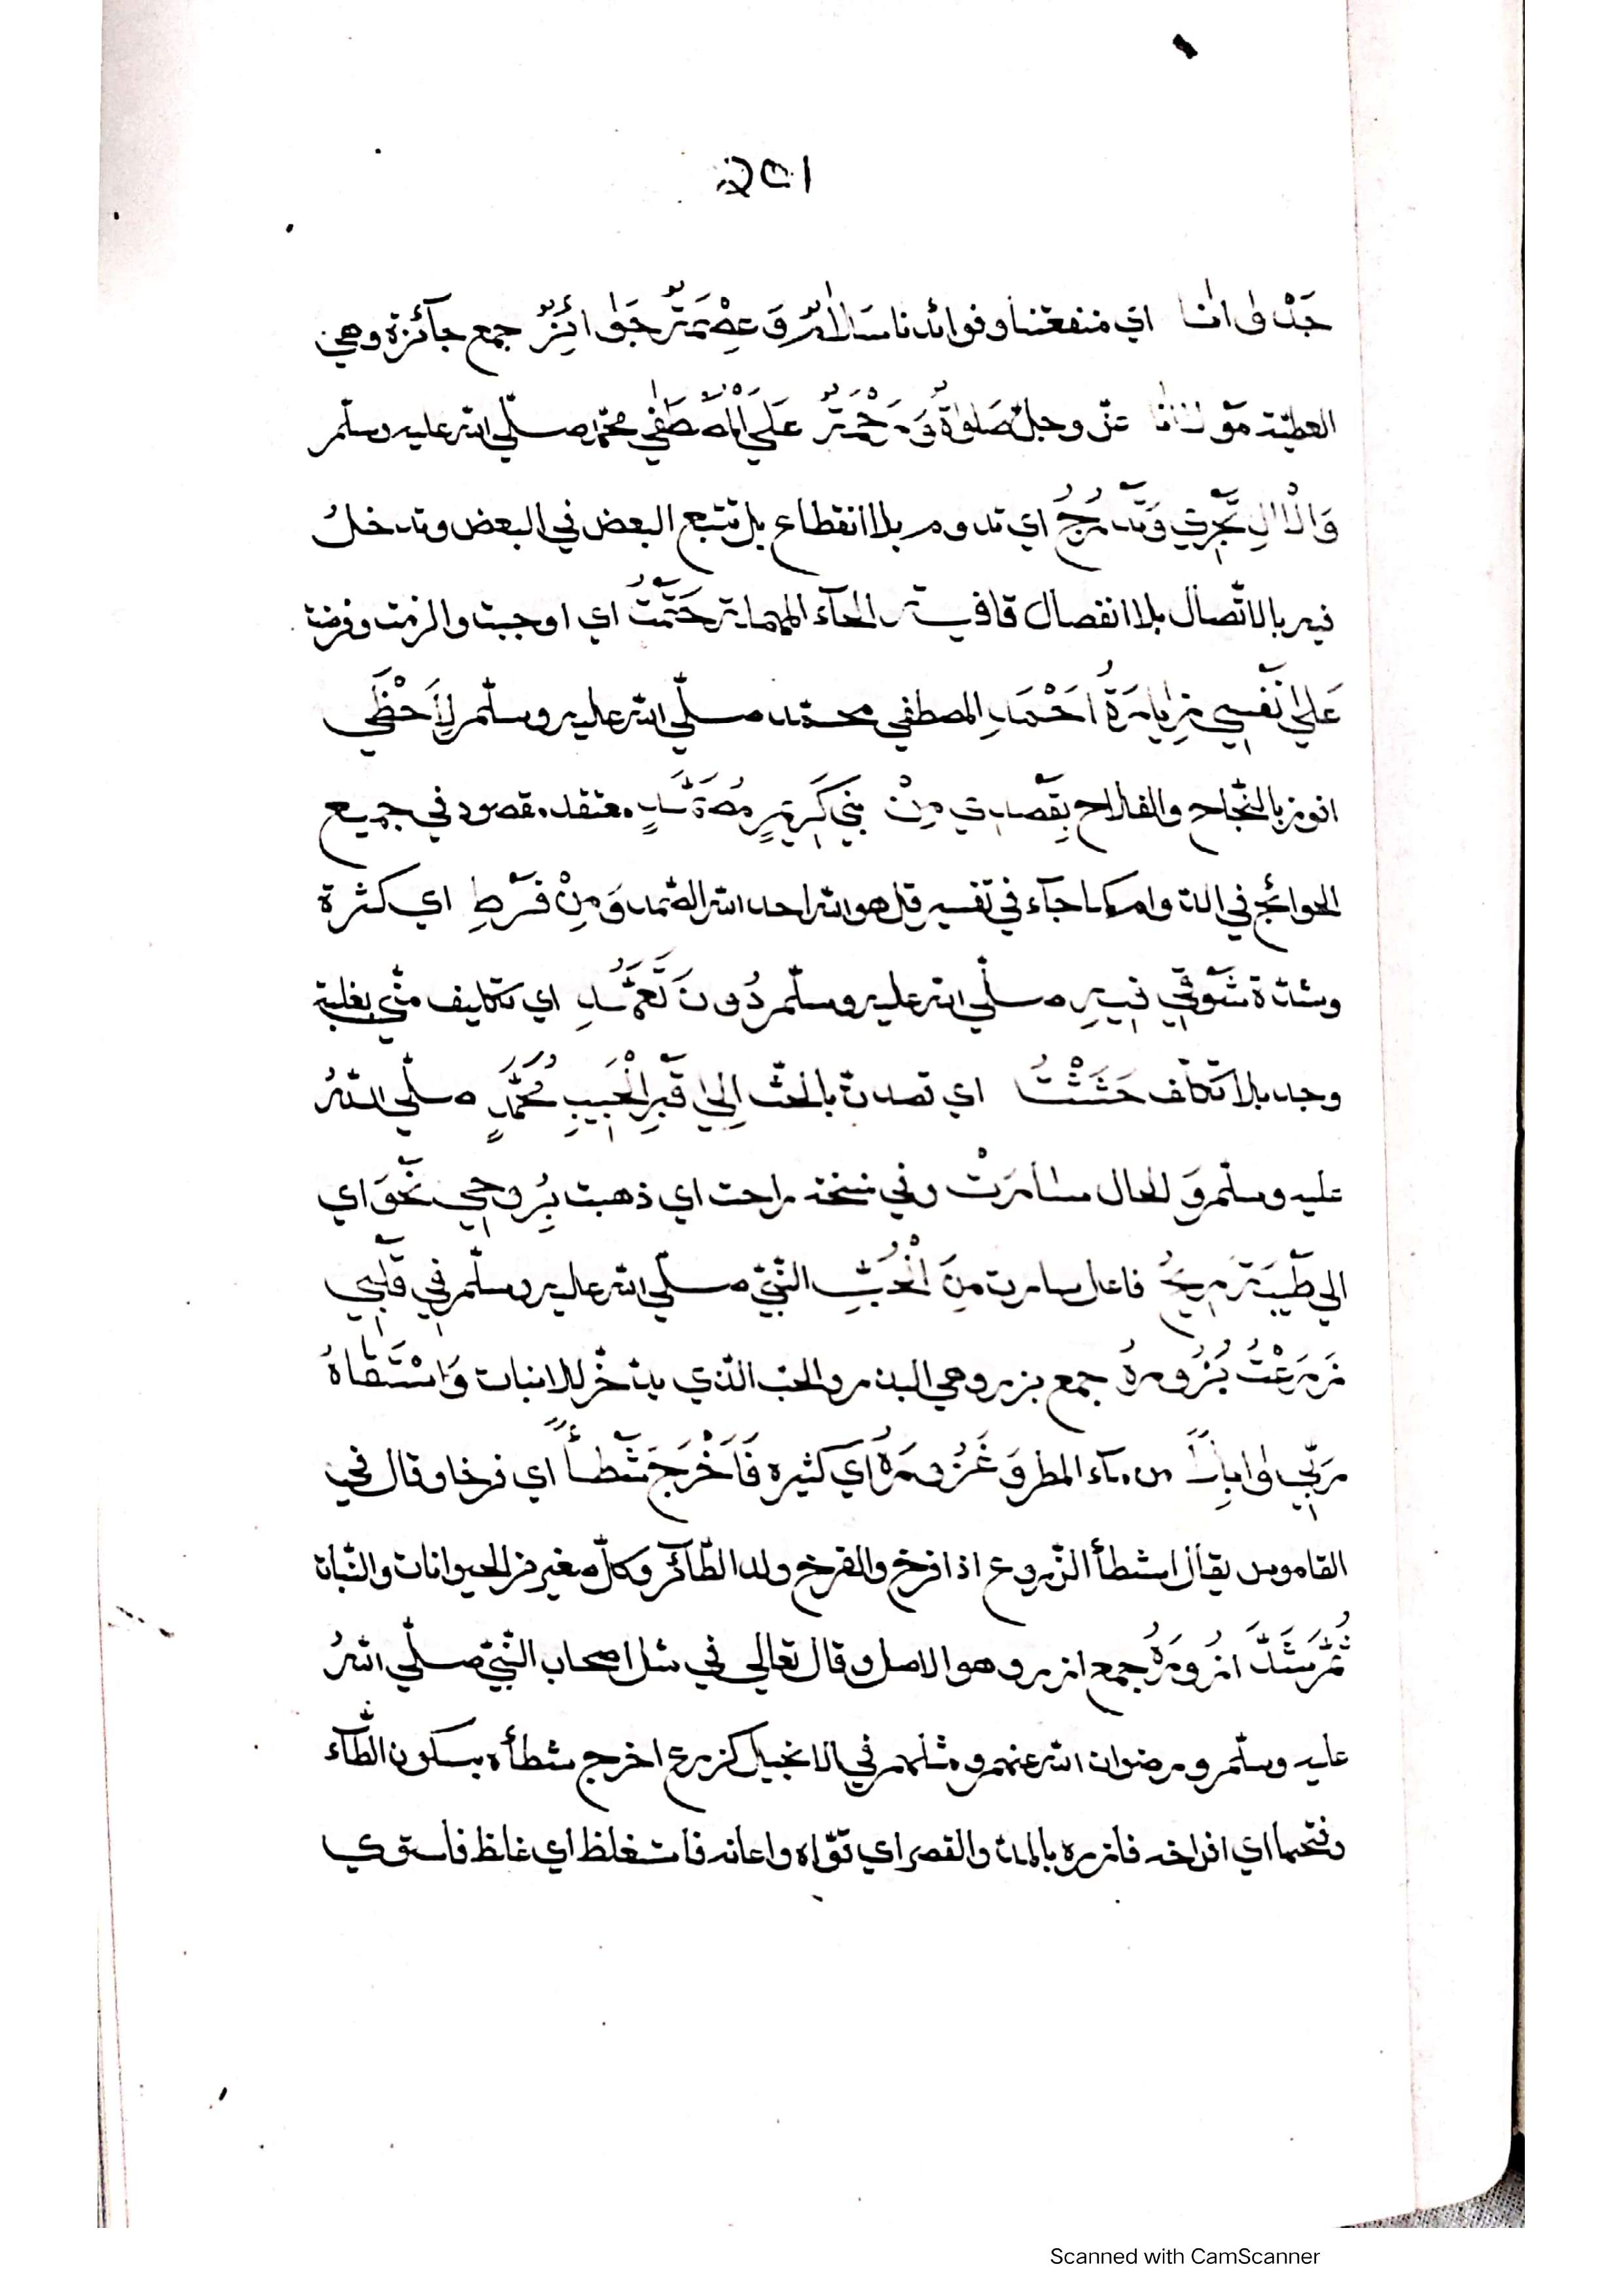 جَدْوٰانَا اي منفعتنا وفوائدنا سَلَامٌ وَعِصْمَةٌ جَوَائِزُ جمع جآئزة وهي
العطيّة مَوْلَانَا عزّ وجلّ صَلٰوةٌ وَرَحْمَةٌ عَلَي الْمُصْطَفٰي محمّد صلّي الله عليه وسلّم
وَالْاٰلِ تَجْرِي وَتَدْرُجُ اي تدوم بلا انقطاع بل تتبع البعض في البعض وتدخلُ
فيه بالاتّصال بلا انفصال قافيـــة الحآء المهملة حَتَمْتُ اي اوجبت والزمت وفرضت
عَلٰي نَفْسِي زِيَارَةُ اَحْمَدِ المصطفي محمّد صلّي الله عليه وسلّم لِاَحْظَي
افوز بالنّجاح والفلاح بِقَصْدِي مِنْ نبي كَرِيمٍ مُصَمَّدٍ معتقد مقصود في جميع
الحوائج في الدوام كما جآء في تفسير قل هو الله احد الله الصّمد وَمِنْ فَرْطِ اي كثرة
وشدّة شَوْقِي فِيهِ صلّي الله عليه وسلّم دُونَ تَعَمُّدِ اي تكليف منّي بغلبة
وجد بلا تكلّف حَثَثْتُ اي قصدت بالحثّ اِلٰي قَبْرِ الْحَبِيبِ مُحَمَّدٍ صلّي اللهُ
عليه وسلّم وَ الحال سَارَتْ وفي نسخة راحت اي ذهبت بِرُوحِي نَحْوَ اي
الي طَيْبَةَ رِيحُ فاعل سارت مِنَ الْحُبِّ النّبيّ صلّي الله عليه وسلّم فِي قَلْبِي
زَرَعْتُ بُزُورهُ جمع بزر وهي البذر والحبّ الّذي يدّخر للانبات وَاسْتَقَاهُ
رَبِّي وَابِلاً من مآء المطر وَغَزُورَهُ اي كثيره فَاَخْرَجَ شَطْأً اي فرخا وقال في
القاموس يقال اشطأ الزّروع اذا افرخ والفرخ ولد الطّآئر وكلّ صغير من الحيوانات والنّبات
ثُمَّ شَدَّ اُزُورَهُ جمع ازر وهو الاصل وقال تعالي في مثل اصحاب النّبيّ صلّي اللهُ
عليه وسلّم ورضوان الله عنهم ومثلهم في الانجيل كزرع اخرج شطأه بسكون الطّآء
وفتحها اي افراخه فازره بالمدّ والقصر اي قوّاه واعانه فاستغلظ اي غلظ فاستوي
Scanned with CamScanner